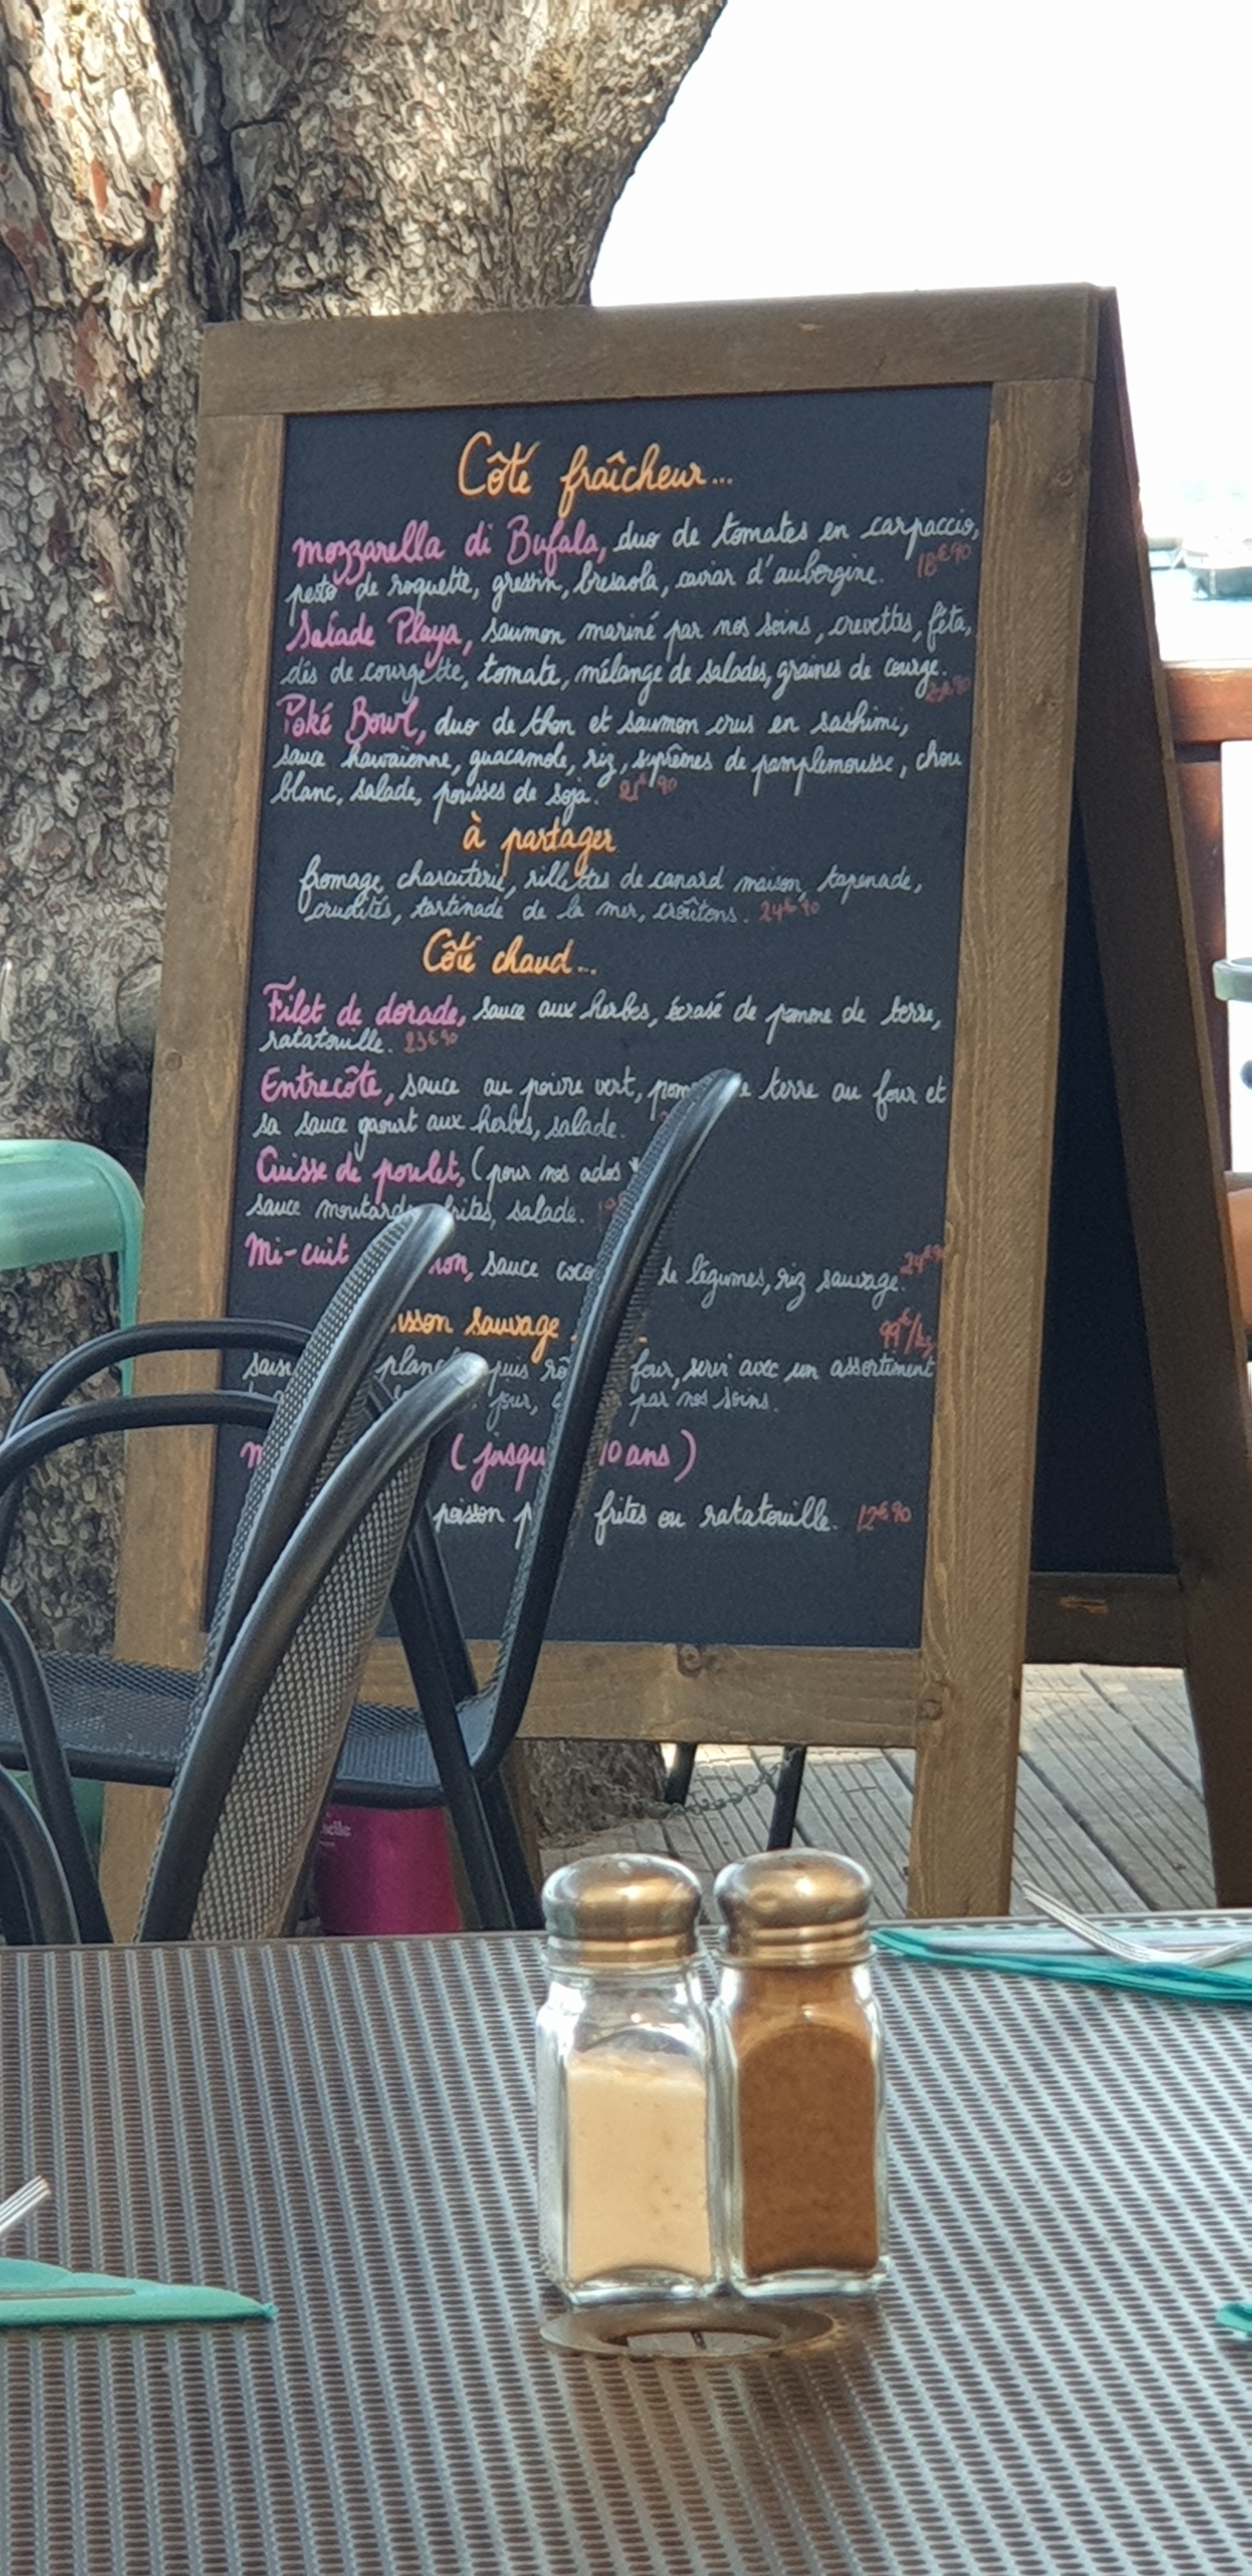 Côté fraîcheur...
mozzarella di Bufala, duo de tomates en carpaccio,
pesto de roquette, gressin, bresaola, caviar d'aubergine. 18€90
Salade Playa, saumon mariné par nos soins, crevettes, féta,
dés de courgette, tomate, mélange de salades, graines de courge.
Poké Bowl, duo de thon et saumon crus en sashimi,
sauce hawaïenne, guacamole, riz, suprêmes de pamplemousse, chou
blanc, salade, pousses de soja. 21€90
à partager
fromage, charcuterie, rillettes de canard maison, tapenade,
crudités, tartinade de la mer, croûtons. 24€90
Côté chaud...
Filet de dorade, sauce aux herbes, écrasé de pomme de terre,
ratatouille. 23€90
Entrecôte, sauce au poivre vert, terre au four et
sa sauce yaourt aux herbes, salade.
Cuisse de poulet, (pour nos ados
sauce frites, salade.
Mi-cuit sauce coco de légumes, riz sauvage. 24€90
sauvage 99€/kg
four, servi avec un assortiment
jour, par nos soins.
( 10 ans )
poisson frites ou ratatouille. 12€90